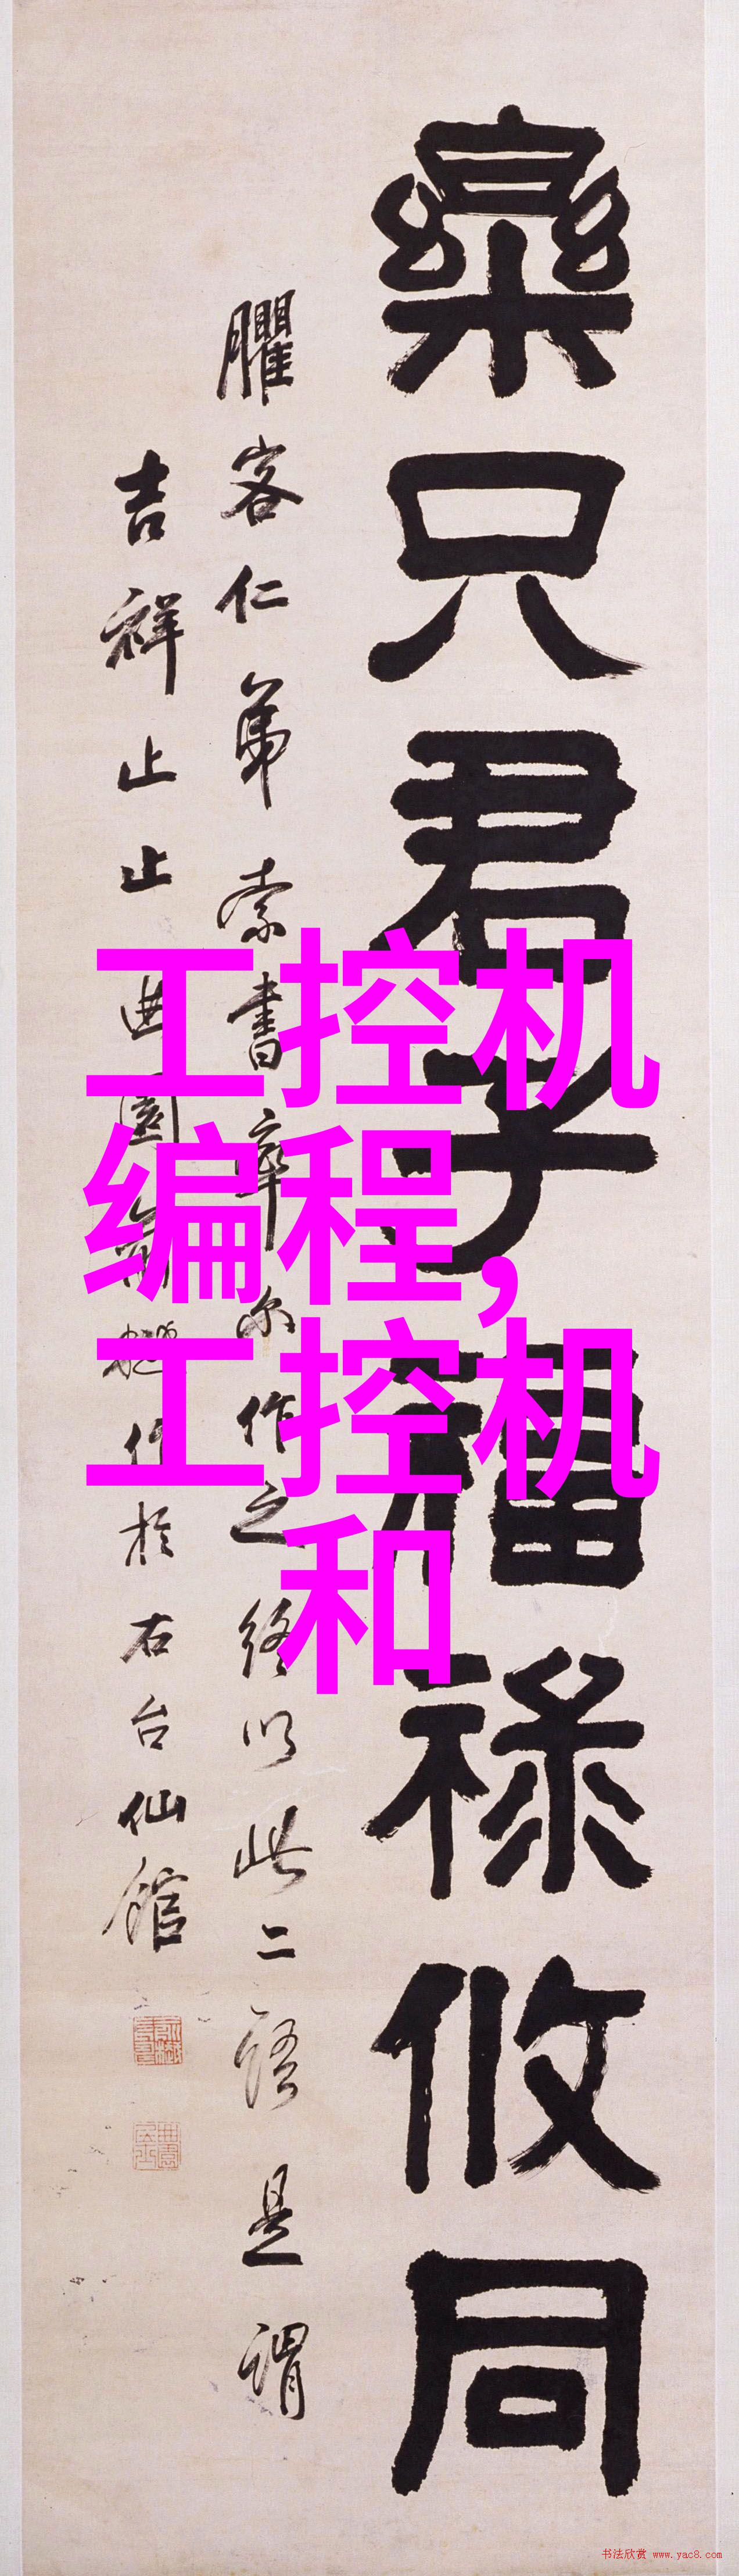 樂只君子福祿攸同
臞客仁弟索書率尔作之終以此二語是謂
吉祥止止曲園俞樾作於右台仙館
工控机
编程,
工控机
和
书法欣赏 www.yac8.com